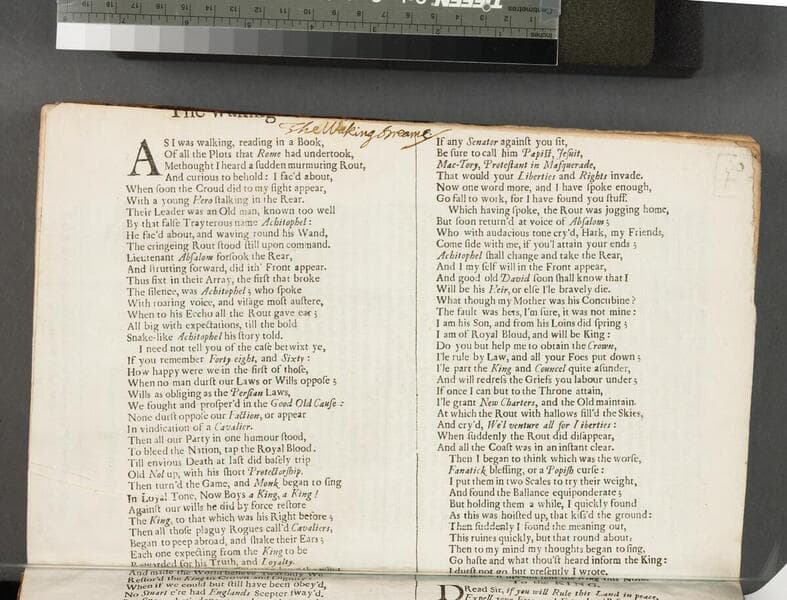 TIFFEN
Centimetres
Inches
The Waking
The Waking Dreame
AS I was walking, reading in a Book,
Of all the Plots that Rome had undertook,
Methought I heard a sudden murmuring Rout,
And curious to behold: I fac'd about,
When soon the Croud did to my sight appear,
With a young Hero stalking in the Rear.
Their Leader was an Old man, known too well
By that false Trayterous name Achitophel:
He fac'd about, and waving round his Wand,
The cringeing Rout stood still upon command.
Lieutenant Absalom forsook the Rear,
And strutting forward, did ith' Front appear.
Thus fixt in their Array, the first that broke
The silence, was Achitophel; who spoke
With roaring voice, and visage most austere,
When to his Eccho all the Rout gave ear;
All big with expectations, till the bold
Snake-like Achitophel his story told.
I need not tell you of the case betwixt ye,
If you remember Forty eight, and Sixty:
How happy were we in the first of those,
When no man durst our Laws or Wills oppose;
Wills as obliging as the Persian Laws,
We fought and prosper'd in the Good Old Cause:
None durst oppose our Faction, or appear
In vindication of a Cavalier.
Then all our Party in one humour stood,
To bleed the Nation, tap the Royal Blood.
Till envious Death at last did basely trip
Old Nol up, with his short Protectorship.
Then turn'd the Game, and Monk began to sing
In Loyal Tone, Now Boys a King, a King!
Against our wills he did by force restore
The King, to that which was his Right before;
Then all those plaguy Rogues call'd Cavaliers,
Began to peep abroad, and shake their Ears;
Each one expecting from the King to be
Rewarded for his Truth, and Loyalty.
And made the World believe
Restor'd the King to Crown and
When if we could but still have been obey'd,
No Stuart e're had Englands Scepter sway'd.
If any Senator against you sit,
Be sure to call him Papist, Jesuit,
Mac-Tory, Protestant in Masquerade,
That would your Liberties and Rights invade.
Now one word more, and I have spoke enough,
Go fall to work, for I have found you stuff.
Which having spoke, the Rout was jogging home,
But soon return'd at voice of Absalom;
Who with audacious tone cry'd, Hark, my Friends,
Come side with me, if you'l attain your ends;
Achitophel shall change and take the Rear,
And I my self will in the Front appear,
And good old David soon shall know that I
Will be his Heir, or else I'le bravely die.
What though my Mother was his Concubine?
The fault was hers, I'm sure, it was not mine:
I am his Son, and from his Loins did spring;
I am of Royal Bloud, and will be King:
Do you but help me to obtain the Crown,
I'le rule by Law, and all your Foes put down;
I'le part the King and Councel quite asunder,
And will redress the Griefs you labour under;
If once I can but to the Throne attain,
I'le grant New Charters, and the Old maintain.
At which the Rout with hallows fill'd the Skies,
And cry'd, We'l venture all for Liberties:
When suddenly the Rout did disappear,
And all the Coast was in an instant clear.
Then I began to think which was the worse,
Fanatick blessing, or a Popish curse:
I put them in two Scales to try their weight,
And found the Ballance equiponderate;
But holding them a while, I quickly found
As this was hoisted up, that kiss'd the ground:
Then suddenly I found the meaning out,
This ruines quickly, but that round about:
Then to my mind my thoughts began to sing,
Go haste and what thou'st heard inform the King:
I durst not go, but presently I wrote,
DRead Sir, if you will Rule this Land in peace,